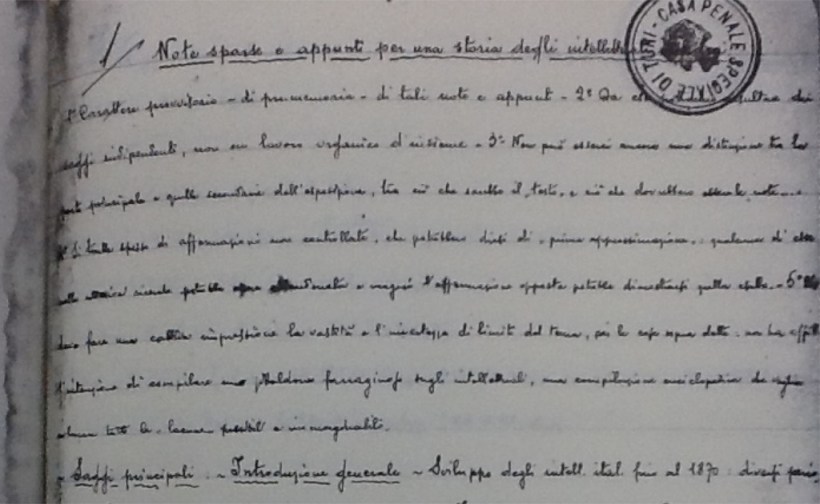 1/ Note sparse e appunti per una storia degli intellettuali
CASA PENALE SPECIALE DI TURI
1º Carattere provvisorio – di pro-memoria – di tali note e appunti – 2º Da essi risultare dei
saggi indipendenti, non un lavoro organico d'insieme – 3º Non può esserci ancora una distinzione tra la
parte principale e quelle secondarie dell'esposizione, tra ciò che sarebbe il "testo" e ciò che dovrebbero essere le "note" –
4º Si tratta spesso di affermazioni non controllate, che potrebbero dirsi di "prima approssimazione": qualcuna di esse
nelle ulteriori ricerche potrebbe essere abbandonata e magari l'affermazione opposta potrebbe dimostrarsi quella esatta. – 5º Non
deve fare una cattiva impressione la vastità e l'incertezza di limiti del tema, per le cose sopra dette: non ha affatto
l'intenzione di compilare uno zibaldone farraginoso sugli intellettuali, una compilazione enciclopedica che voglia
colmare tutte le "lacune" possibili e immaginabili.
Saggi principali: – Introduzione generale – Sviluppo degli intell. ital. fino al 1870: diversi